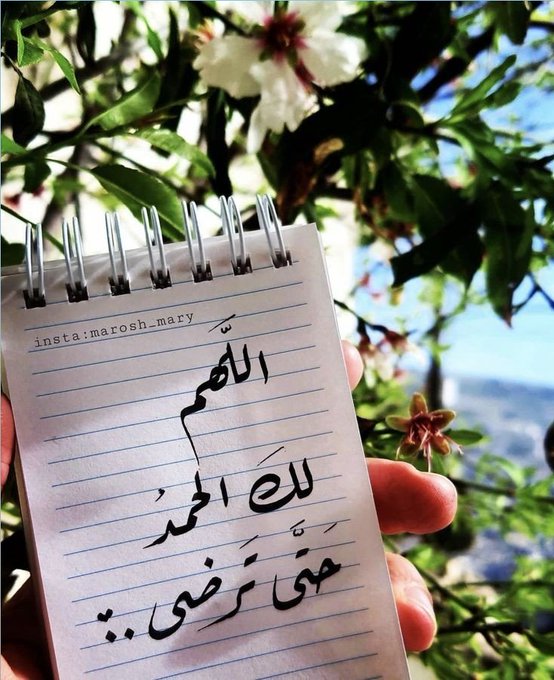 insta:marosh_mary
اللَّهم
لكَ الحمدُ
حَتَّى تَرضى ..